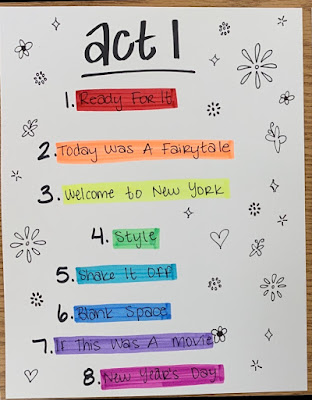 act 1
1. Ready For It
2. Today Was A Fairytale
3. Welcome to New York
4. Style
5. Shake It Off
6. Blank Space
7. If This Was A Movie
8. New Year's Day